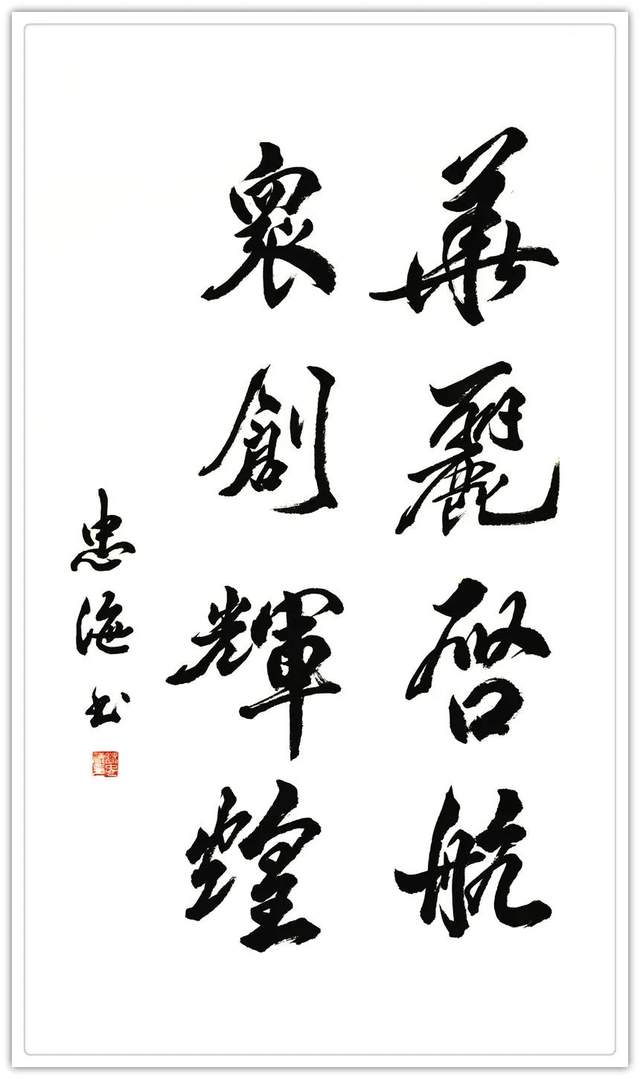 華麗啓航
衆創輝煌
忠海书